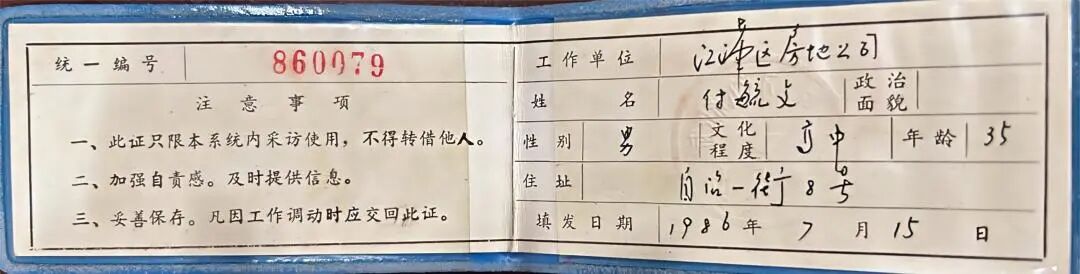 统一编号 860079
注意事项
一、此证只限本系统内采访使用，不得转借他人。
二、加强自责感。及时提供信息。
三、妥善保存。凡因工作调动时应交回此证。
工作单位 江津区房地公司
姓名 付毓文 政治面貌
性别 男 文化程度 高中 年龄 35
住址 自治一街8号
填发日期 1986年7月15日